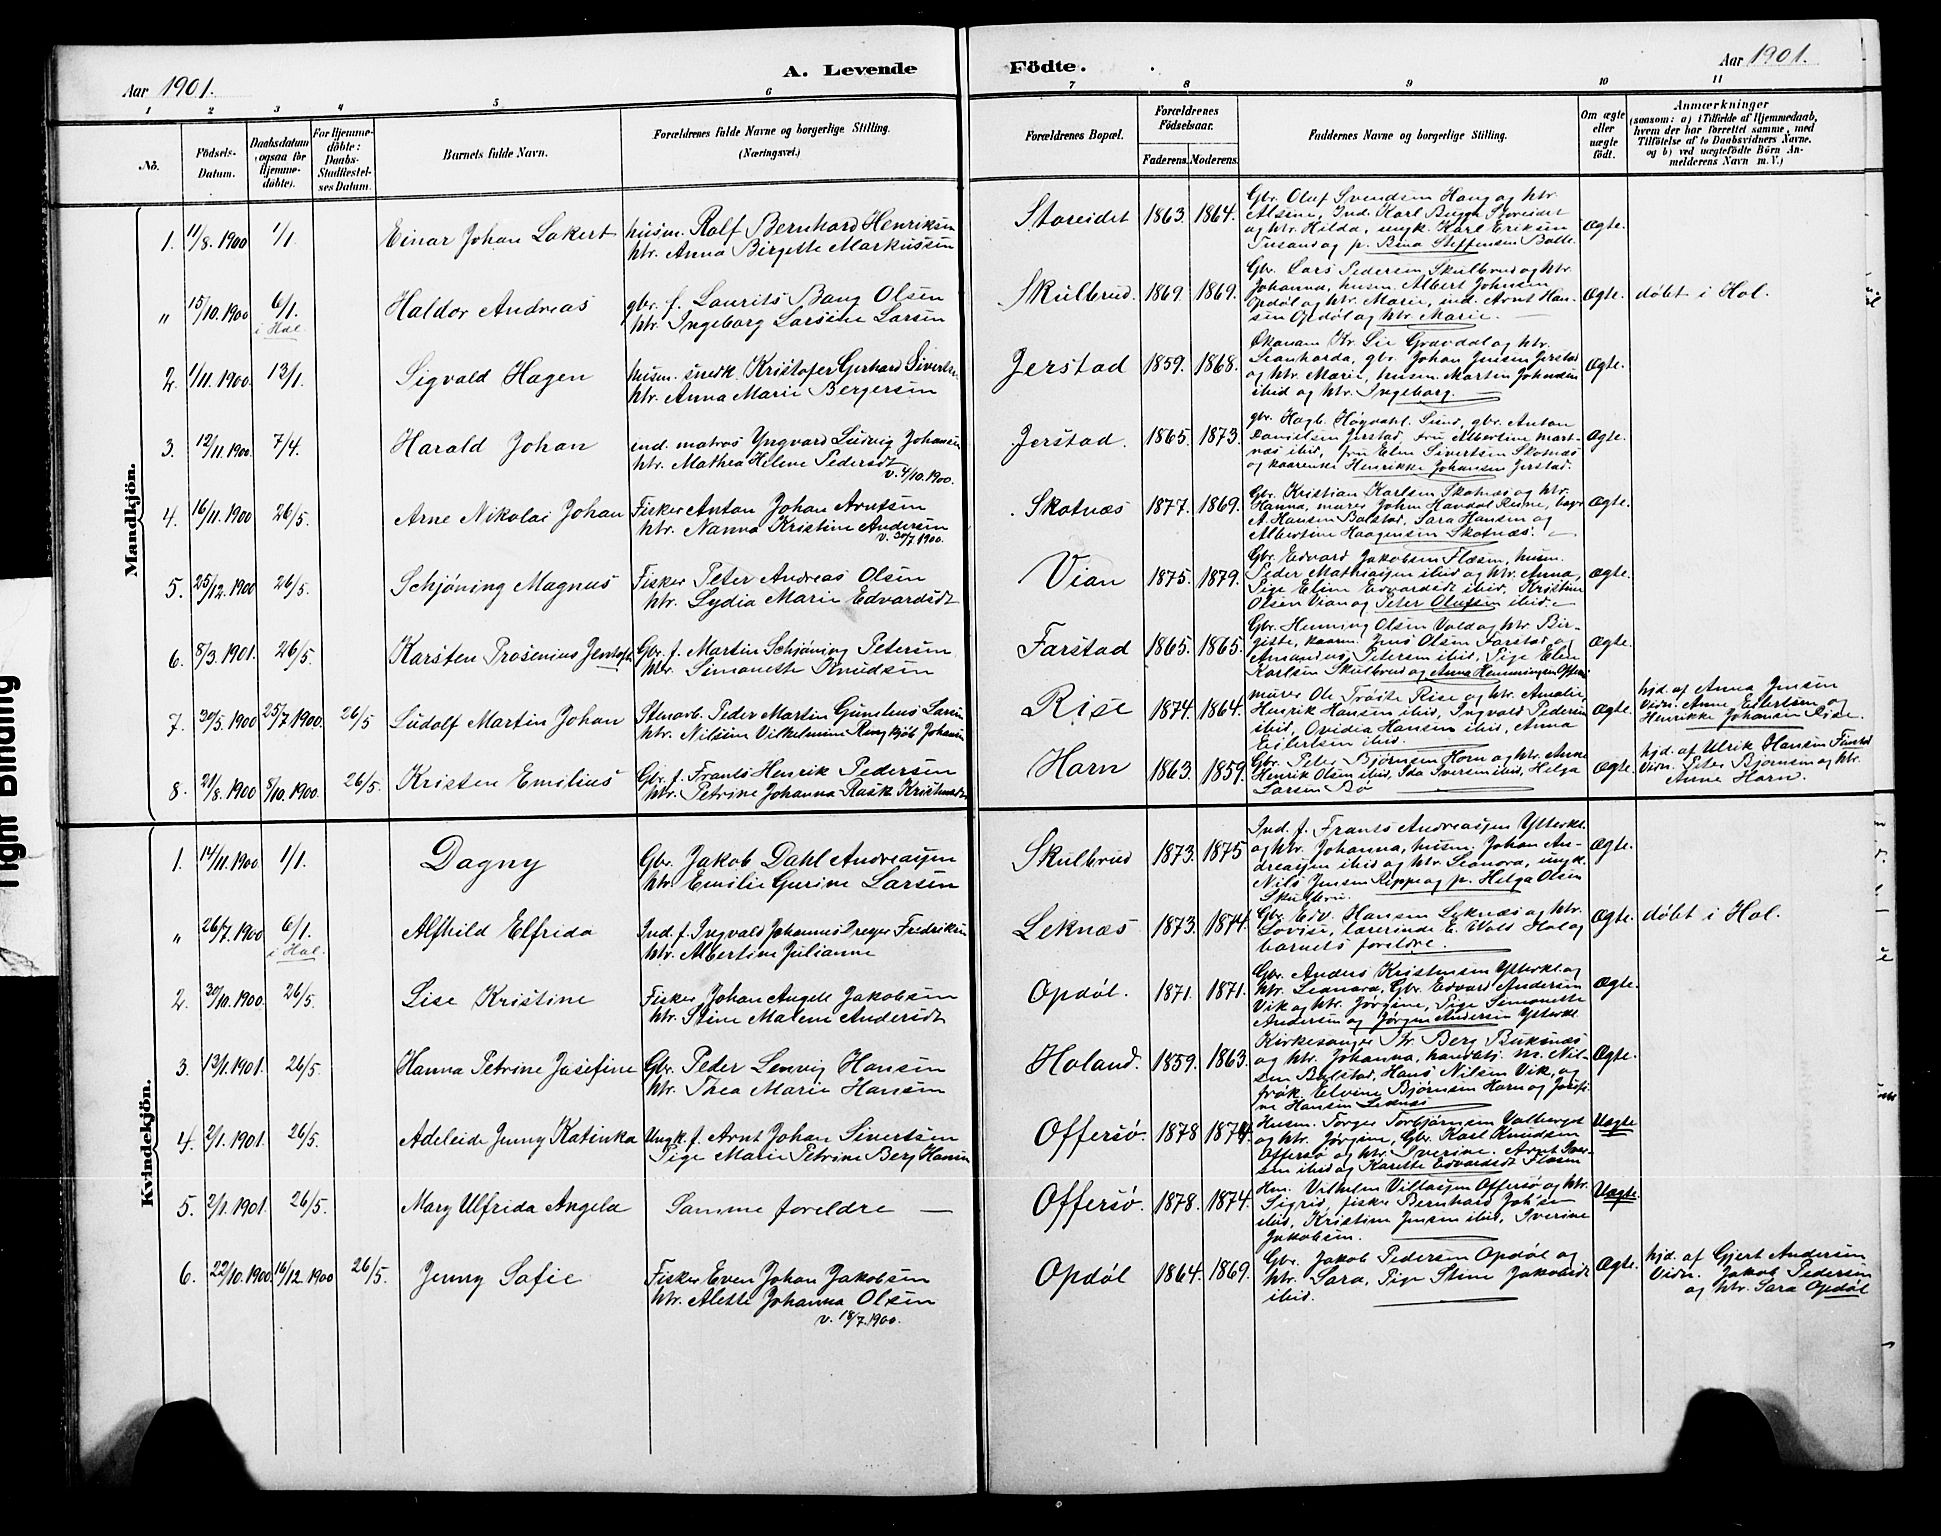 Aar 1901.
A. Levende Födte.
Aar 1901.
1 2 3 4 5 6 7 8 9 10 11
No.
Födsels-Datum.
Daabsdatum (ogsaa för Hjemme-döbte).
For Hjemme-döbte: Daabs-Stadfæstel-ses Datum.
Barnets fulde Navn.
Forældrenes fulde Navne og borgerlige Stilling.
(Næringsvei.)
Forældrenes Bopæl.
Forældrenes Födselsaar.
Faderens. Moderens.
Faddernes Navne og borgerlige Stilling.
Om ægte eller uægte födt.
Anmærkninger
(saasom: a) i Tilfælde af Hjemmedaab,
hvem der har forrettet samme, med
Tilföielse af to Daabsvidners Navne,
og b) ved uægtefödte Börn An-
melderens Navn m. V.)
Mandkjön.
1. 11/8. 1900 1/1 Einar Johan Lokert
husm. Rolf Bernhard Henriksen
htr. Anna Birgitte Markussen
Storeidet 1863. 1864.
Gbr. Oluf Svendsen Haug og htr.
Alsine, Ind. Karl Bugge Storeidet
og htr. Hilda, ungk. Karl Eriksen
og p. Bina Steffensen Bolle
Ægte.
" 15/10. 1900 6/1. i Hol Haldor Andreas
gbr. f. Laurits Bang Olsen
htr. Ingeborg Larsine Larsen
Skulbrud. 1869. 1869.
Gbr. Lars Pedersen Skulbrud og htr.
Johanna, husm. Albert Johnsen
Opdøl og htr. Marie, ind. Arnt Han-
sen Opdøl og htr. Marie.
Ægte. døbt i Hol.
2. 1/11. 1900. 13/1. Sigvald Hagen
husm. snedk. Kristofer Gerhard Sivertsen
htr. Anna Marie Bergersen
Jerstad 1859. 1868.
Leonharda, gbr. Johan Jensen Jerstad
og htr. Marie, husm. Martin Johnsen
ibid og htr. Ingeborg.
Ægte.
3. 12/11. 1900. 7/4. Harald Johan
ind. matros Yngvard Ludvig Johansen
htr. Mathea Helene Pedersdt
v. 4/10. 1900.
Jerstad. 1865. 1873.
gbr. Hagb. Høgvahl. Sund, gbr. Anton
Danielsen Jerstad, fru Albertine Mart-
næs ibid, fru Elen Sivertsen Skotnæs
og kaarenke Henrikke Johansen Jerstad.
Ægte.
4. 16/11. 1900 26/5. Arne Nikolai Johan
Fisker Anton Johan Arntsen
htr. Nanna Kristine Andersen
v. 30/7. 1900.
Skotnæs 1877. 1869.
Gbr. Kristian Karlsen Skotnæs og htr.
Hanna, murer John Havdal Reine,
A. Hansen Bolstad, Sara Hansen og
Albertine Haagensen Skotnæs.
Ægte.
5. 25/12. 1900 26/5. Schjöning Magnus
Fisker Peter Andreas Olsen
htr. Lydia Marie Edvardsdt
Vian 1875. 1879.
Gbr. Edvard Jakobsen Flæsen, husm.
Peder Mathiassen ibid og htr. Anna,
Pige Eline Edvardsdt ibid, Kristine
Olsen Vian og Peter Olufsen ibid.
Ægte.
6. 8/3. 1901. 26/5. Karsten Prosenius Jentoft
Gbr. f. Martin Schjöning Petersen
htr. Simonette Knudsen
Farstad 1865. 1865.
Gbr. Henning Olsen Vold og htr. Bir-
gitte, kaarm. Jens Olsen Farstad, og
Amandus Petersen ibid, Pige Elise
Karlsen Skulbrud og Anna Henningsen
Ægte.
7. 30/5. 1900 25/7. 1900. 26/5 Ludolf Martin Johan
Stenarb. Peder Martin Gunelius Larsen
htr. Nilsine Vilhelmine Ringkjöb Johansen
Rise 1874. 1864.
murer Ole Trøite Rise og htr. Amalie,
Henrik Hansen ibid, Ingvald Pedersen
ibid, Ovidia Hansen ibid, Anna
Eilertsen ibid.
Ægte.
hjd. af Anna Jensen
Vidn. Anne Eilertsen og
Henrikke Johansen Rise.
8. 21/8. 1900 8/10. 1900. 26/5. Kristen Emilius
Gbr. f. Frants Henrik Pedersen
htr. Petrine Johanna Rask Kristensdt
Horn 1863. 1859.
Gbr. Peter Bjørnsen Horn og htr. Anne
Henrik Olsen ibid, Ida Iversen ibid, Helga
Larsen Bø
Ægte.
hjd. af Ulrik Hansen Finstad
Vidn. Peter Bjørnsen og htr.
Anne Horn.
Kvindekjön.
1. 14/11. 1900 1/1. Dagny
Gbr. Jakob Dahl Andreassen
htr. Emilie Gurine Larsen
Skulbrud 1873. 1875
Ind. f. Frants Andreassen Ytterkl.
og htr. Johanna, husm. Johan An-
dreassen ibid og htr. Leonora, ungk.
Nils Jensen Rippe og p. Helga Olsen
Skulbru.
Ægte.
" 26/7. 1900 6/1. i Hol. Alfhild Elfrida
Ind. f. Ingvald Johannes Dreyer Fredriksen
htr. Albertine Julianne
Leknæs 1873. 1874.
Gbr. Edv. Hansen Leknæs og htr.
Lovise, lærerinde E. Wold Hol og
barnets foreldre.
Ægte. døbt i Hol.
2. 30/10. 1900. 26/5. Lise Kristine
Fisker Johan Angell Jakobsen
htr. Stine Malene Andersdt
Opdøl. 1871. 1871.
Gbr. Anders Kristensen Ytterkl og
htr. Leonora, Gbr. Edvard Andersen
Vik og htr. Jørgine, Pige Simonette
Andersen og Jørgen Andersen Ytterkl
Ægte.
3. 13/1. 1901. 26/5. Hanna Petrine Josefine
Gbr. Peder Lenvig Hansen
htr. Thea Marie Hansen
Holand. 1859. 1863.
Kirkesanger Th. Berg Buksnæs
og htr. Johanna, handelsb. M. Nil-
sen Bolstad, Hans Nilsen Vik, og
frøk. Elvine Bjørnsen Horn og Josefi-
ne Hansen Leknæs
Ægte.
4. 2/1. 1901. 26/5. Adeleide Jenny Katinka
Ungk. f. Arnt Johan Sivertsen
Pige Marie Petrine Berg Hansen
Offersø. 1878 1874.
Husm. Torger Torbjørnsen Valbergst
og htr. Jørgine, Gbr. Karl Knudsen
Offersø og htr. Iverine. Arnt Iver-
sen ibid og Karette Edvardsdt Flæsen
Uægte
5. 2/1. 1901. 26/5. Mary Ulfrida Angela
Samme foreldre —
Offersø. 1878. 1874.
Hm. Vilhelm Villassen Offersø og htr.
Sigrid, fisker Bernhard Joh'sen
ibid, Kristine Jensen ibid, Iverine
Jakobsen.
Uægte.
6. 22/10. 1900 16/12. 1900 26/5. Jenny Sofie
Fisker Even Johan Jakobsen
htr. Alette Johanna Olsen
v. 18/7. 1900.
Opdøl 1864. 1869.
Gbr. Jakob Pedersen Opdøl og
htr. Sara, Pige Stine Jakobsdt
ibid.
Ægte.
hjd. af Gjert Andersen
Vidn. Jakob Pedersen
og htr. Sara Opdøl
Tight Binding